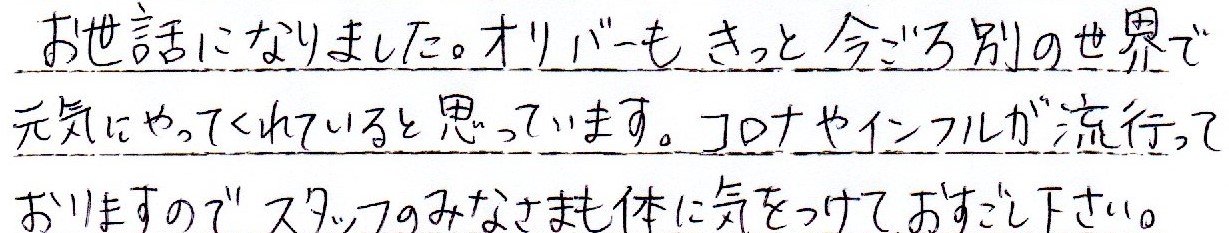 お世話になりました。オリバーも きっと 今ごろ別の世界で
元気にやってくれていると思っています。コロナやインフルが流行って
おりますので スタッフのみなさまも体に気をつけて おすごし下さい。